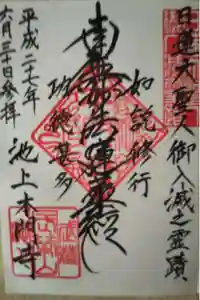 日蓮大聖人御入滅之霊蹟
如説修行
南無妙法蓮華経
功徳甚多
平成二十七年
六月三十日参拝
池上本門寺